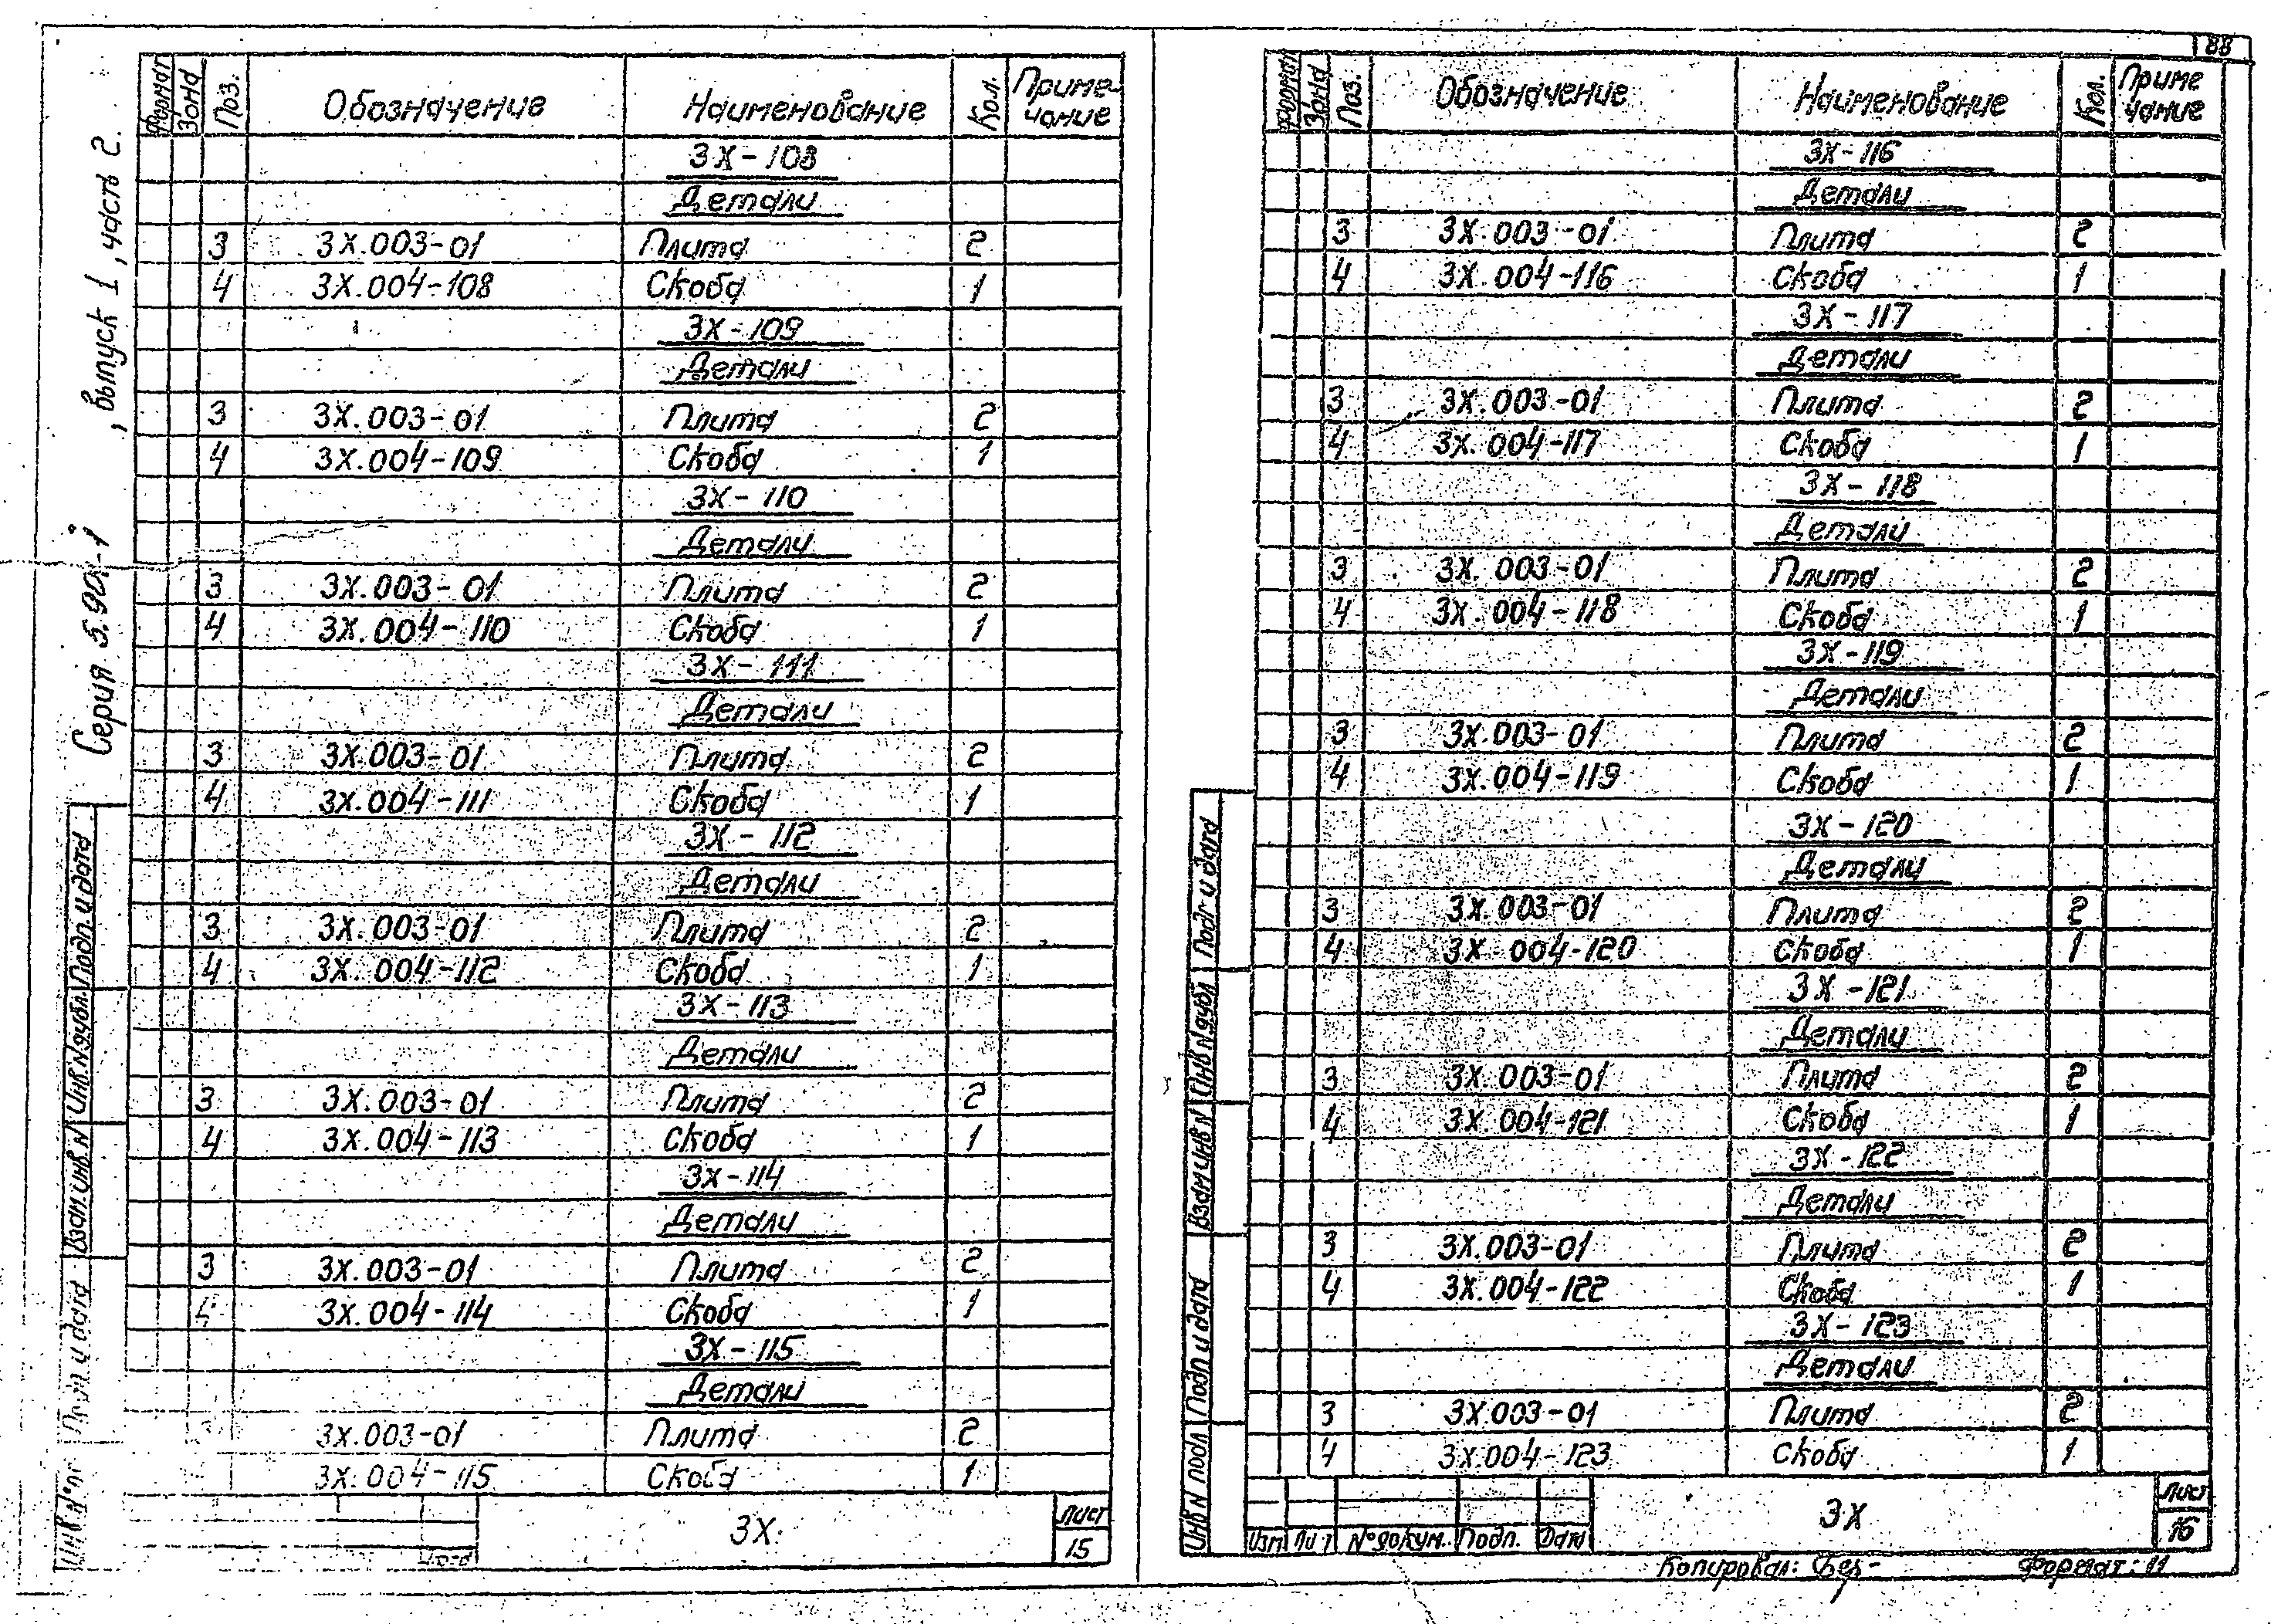 88
Серия 5.901-1 , выпуск 1 , часть 2.
Формат Зона Поз. Обозначение Наименование Кол. Примечание
3Х-108
Детали
3 3Х.003-01 Плита 2
4 3Х.004-108 Скоба 1
3Х-109
Детали
3 3Х.003-01 Плита 2
4 3Х.004-109 Скоба 1
3Х-110
Детали
3 3Х.003-01 Плита 2
4 3Х.004-110 Скоба 1
3Х-111
Детали
3 3Х.003-01 Плита 2
4 3Х.004-111 Скоба 1
3Х-112
Детали
3 3Х.003-01 Плита 2
4 3Х.004-112 Скоба 1
3Х-113
Детали
3 3Х.003-01 Плита 2
4 3Х.004-113 Скоба 1
3Х-114
Детали
3 3Х.003-01 Плита 2
3Х.004-114 Скоба 1
3Х-115
Детали
3Х.003-01 Плита 2
3Х.004-115 Скоба 1
3Х.
Лист
15
Подп. и дата
Инв.N дубл.
Взам.инв.N
и дата
Формат Зона Поз. Обозначение Наименование Кол. Приме чание
3Х-116
Детали
3 3Х.003-01 Плита 2
4 3Х.004-116 Скоба 1
3Х-117
Детали
3 3Х.003-01 Плита 2
4 3Х.004-117 Скоба 1
3Х-118
Детали
3 3Х.003-01 Плита 2
4 3Х.004-118 Скоба 1
3Х-119
Детали
3 3Х.003-01 Плита 2
4 3Х.004-119 Скоба 1
3Х-120
Детали
3 3Х.003-01 Плита 2
4 3Х-004-120 Скоба 1
3Х-121
Детали
3 3Х.003-01 Плита 2
4 3Х.004-121 Скоба 1
3Х-122
Детали
3 3Х.003-01 Плита 2
4 3Х.004-122 Скоба 1
3Х-123
Детали
3 3Х.003-01 Плита 2
4 3Х.004-123 Скоба 1
Изм N°докум. Подп. Дата
3Х
Лист
16
и дата
Инв N дубл
Взам инв N
Подп и дата
Инв N подл
Копировал: Формат: 11